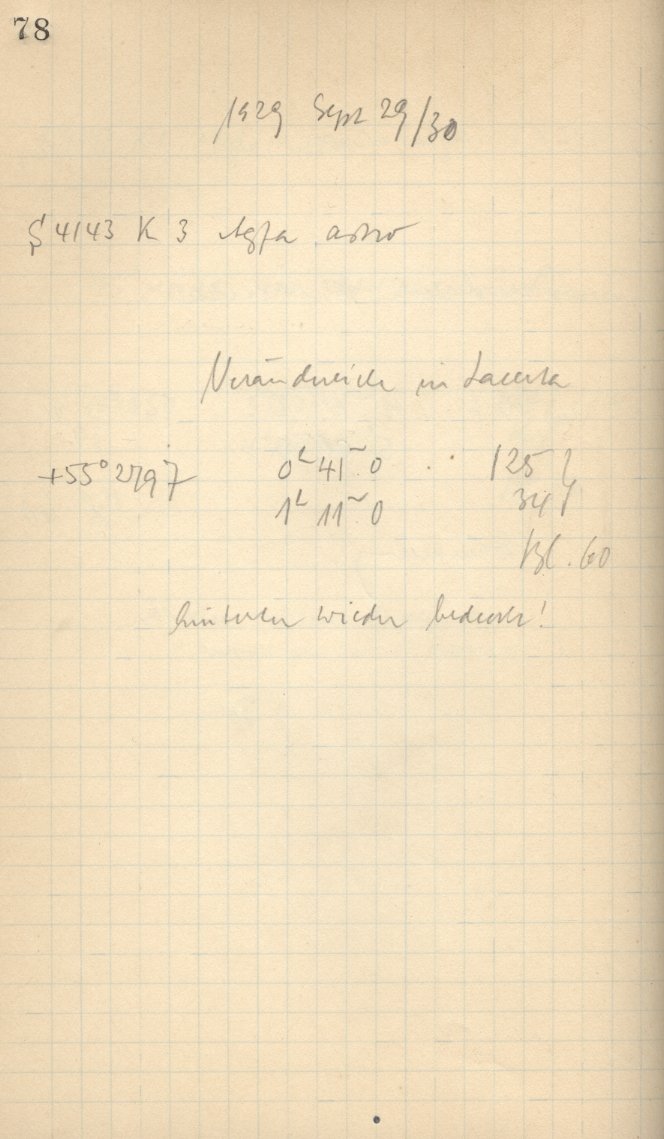 78
1929 Sept 29/30
S 4143 K 3 Agfa astro
Veränderliche in Lacerta
+55° 2797 0ʰ 41ᵐ 0 125
1ʰ 11ᵐ 0 34
Bl. 60
wieder bedeckt!